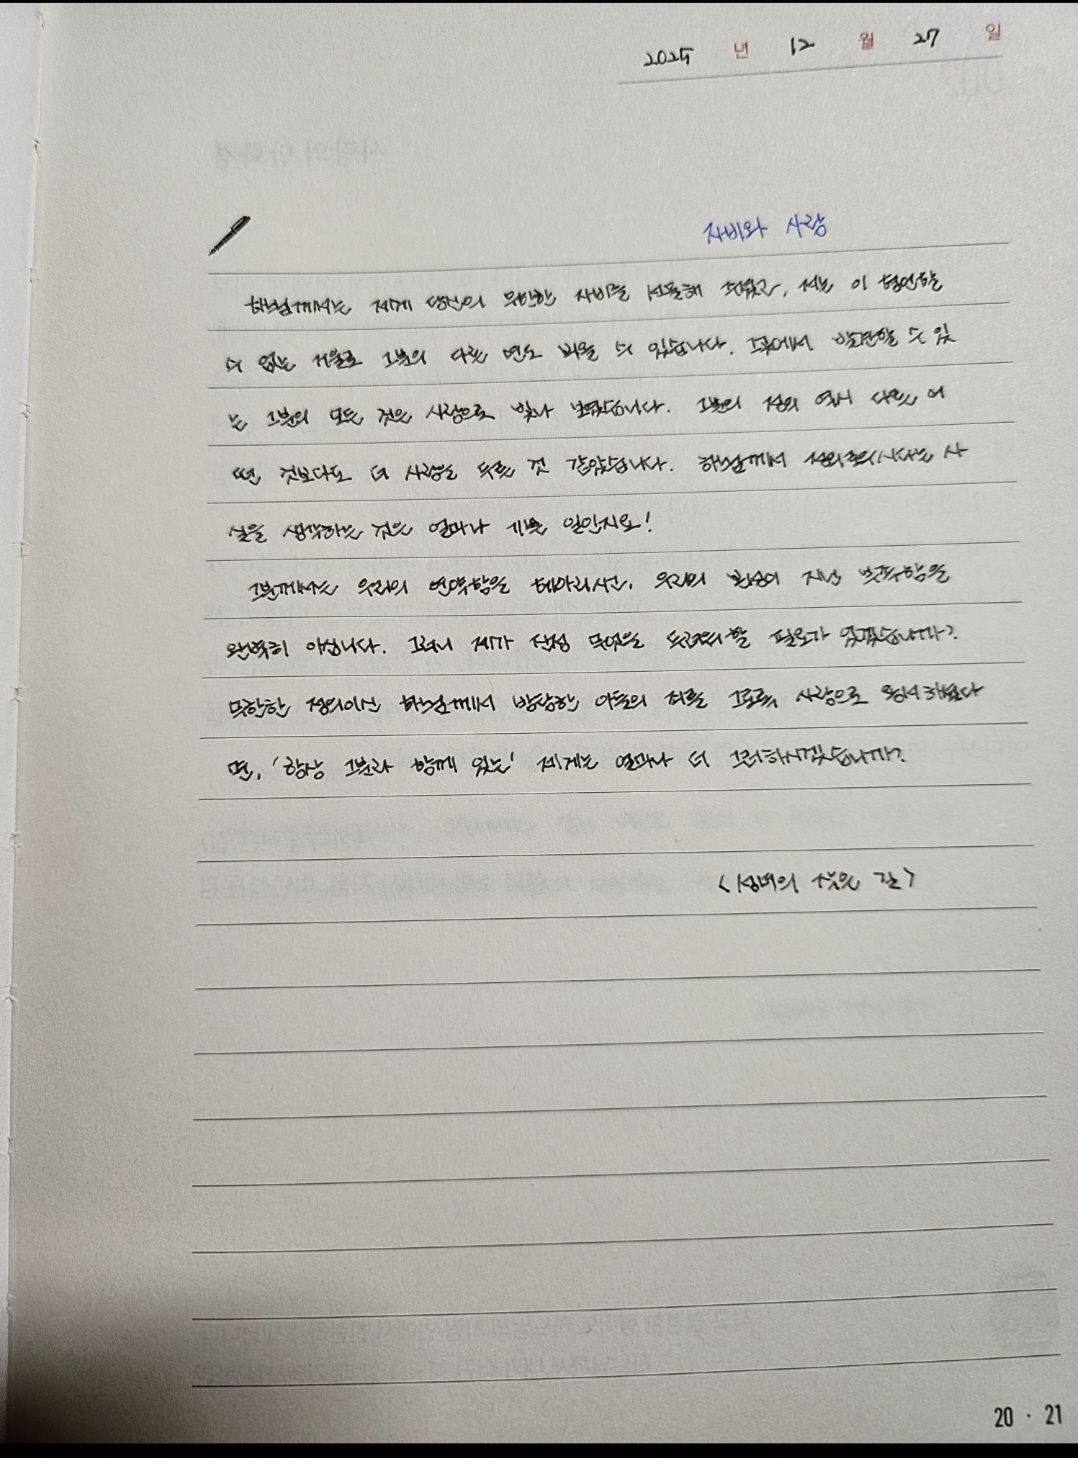 2025 년 12 월 27 일
자비와 사랑
하느님께서는 제게 당신의 무한한 자비를 선물해 주셨고, 저는 이 형언할
수 없는 거울로 그분의 다른 면도 비출 수 있습니다. 그곳에서 발견할 수 있
는 그분의 모든 것은 사랑으로 빛나 보였습니다. 그분의 정의 역시 다른 어
떤 것보다도 더 사랑을 두른 것 같았습니다. 하느님께서 정의로우시다는 사
실을 생각하는 것은 얼마나 기쁜 일인지요!
그분께서는 우리의 연약함을 헤아리시고, 우리의 본성이 지닌 부족함을
완벽히 아십니다. 그러니 제가 진정 무엇을 두려워할 필요가 있겠습니까?
무한한 정의이신 하느님께서 방탕한 아들의 죄를 그토록 사랑으로 용서하셨다
면, '항상 그분과 함께 있는' 제게는 얼마나 더 그러하시겠습니까?
<성녀의 작은 길>
20 · 21